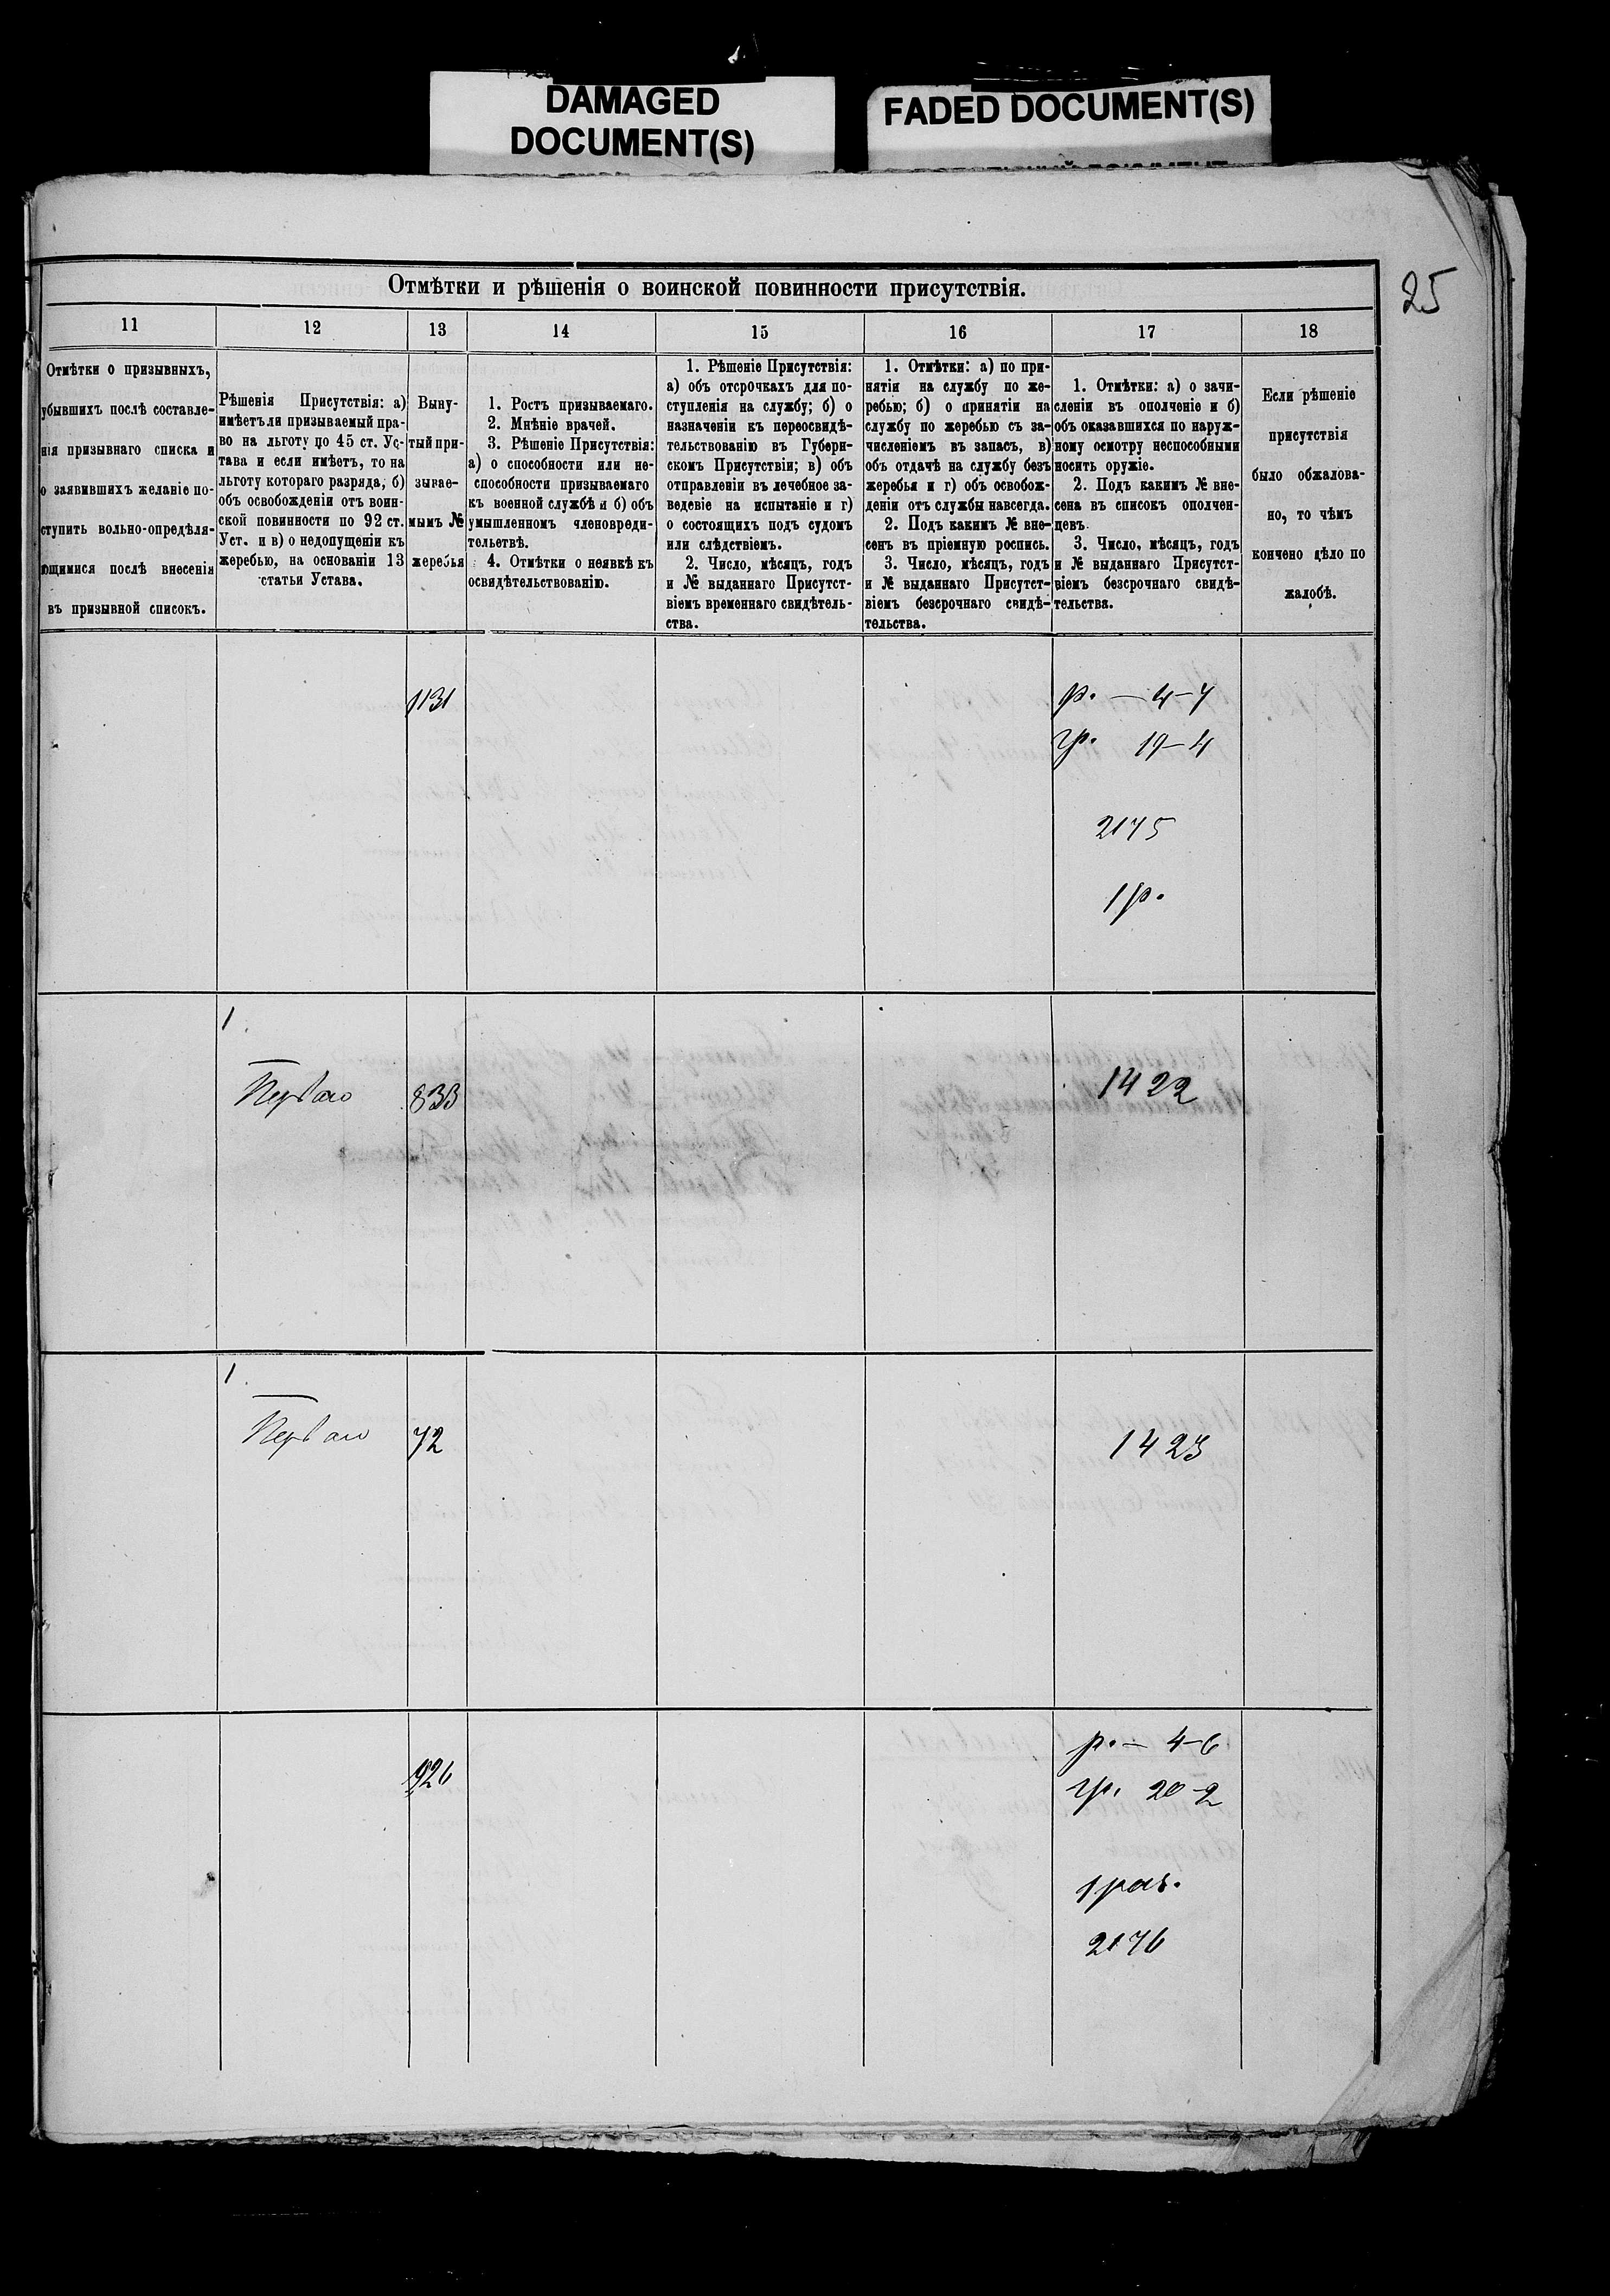 DAMAGED
DOCUMENT(S)
FADED DOCUMENT(S)
25
Отмѣтки и рѣшенія о воинской повинности присутствія.
11
12
13
14
15
16
17
18
Отмѣтки о призывныхъ,
убывшихъ послѣ составле-
нія призывнаго списка и
о заявившихъ желаніе по-
ступить вольно-опредѣля-
ющимися послѣ внесенія
въ призывной списокъ.
Рѣшенія Присутствія: а)
имѣетъ ли призываемый пра-
во на льготу по 45 ст. Ус-
тава и если имѣетъ, то на
льготу котораго разряда, б)
объ освобожденіи отъ воин-
ской повинности по 92 ст.
Уст. и в) о недопущеніи къ
жеребью, на основаніи 13
статьи Устава.
Выну-
тый при-
зывае-
мымъ №
жеребья
1. Ростъ призываемаго.
2. Мнѣніе врачей.
3. Рѣшеніе Присутствія:
а) о способности или не-
способности призываемаго
къ военной службѣ и б) объ
умышленномъ членовреди-
тельствѣ.
4. Отмѣтки о неявкѣ къ
освидѣтельствованію.
1. Рѣшеніе Присутствія:
а) объ отсрочкахъ для по-
ступленія на службу; б) о
назначеніи къ переосвидѣ-
тельствованію въ Губерн-
скомъ Присутствіи; в) объ
отправленіи въ лечебное за-
веденіе на испытаніе и г)
о состоящихъ подъ судомъ
или слѣдствіемъ.
2. Число, мѣсяцъ, годъ
и № выданнаго Присутст-
віемъ временнаго свидѣтель-
ства.
1. Отмѣтки: а) по при-
нятіи на службу по же-
ребью; б) о принятіи на
службу по жеребью съ за-
численіемъ въ запасъ, в)
объ отдачѣ на службу безъ
жеребья и г) объ освобож-
деніи отъ службы навсегда.
2. Подъ какимъ № вне-
сенъ въ пріемную роспись.
3. Число, мѣсяцъ, годъ
и № выданнаго Присутст-
віемъ безсрочнаго свидѣ-
тельства.
1. Отмѣтки: а) о зачи-
сленіи въ ополченіе и б)
объ оказавшихся по наруж-
ному осмотру неспособными
носить оружіе.
2. Подъ какимъ № вне-
сена въ списокъ ополчен-
цевъ.
3. Число, мѣсяцъ, годъ
и № выданнаго Присутст-
віемъ безсрочнаго свидѣ-
тельства.
Если рѣшеніе
присутствія
было обжалова-
но, то чѣмъ
кончено дѣло по
жалобѣ.
1131
р. — 4-7
гр. 19-4
2175
1 р.
1
Перваго
833
1422
1
Перваго
72
1423
926
р. — 4-6
гр. 20-2
1 раз.
2176